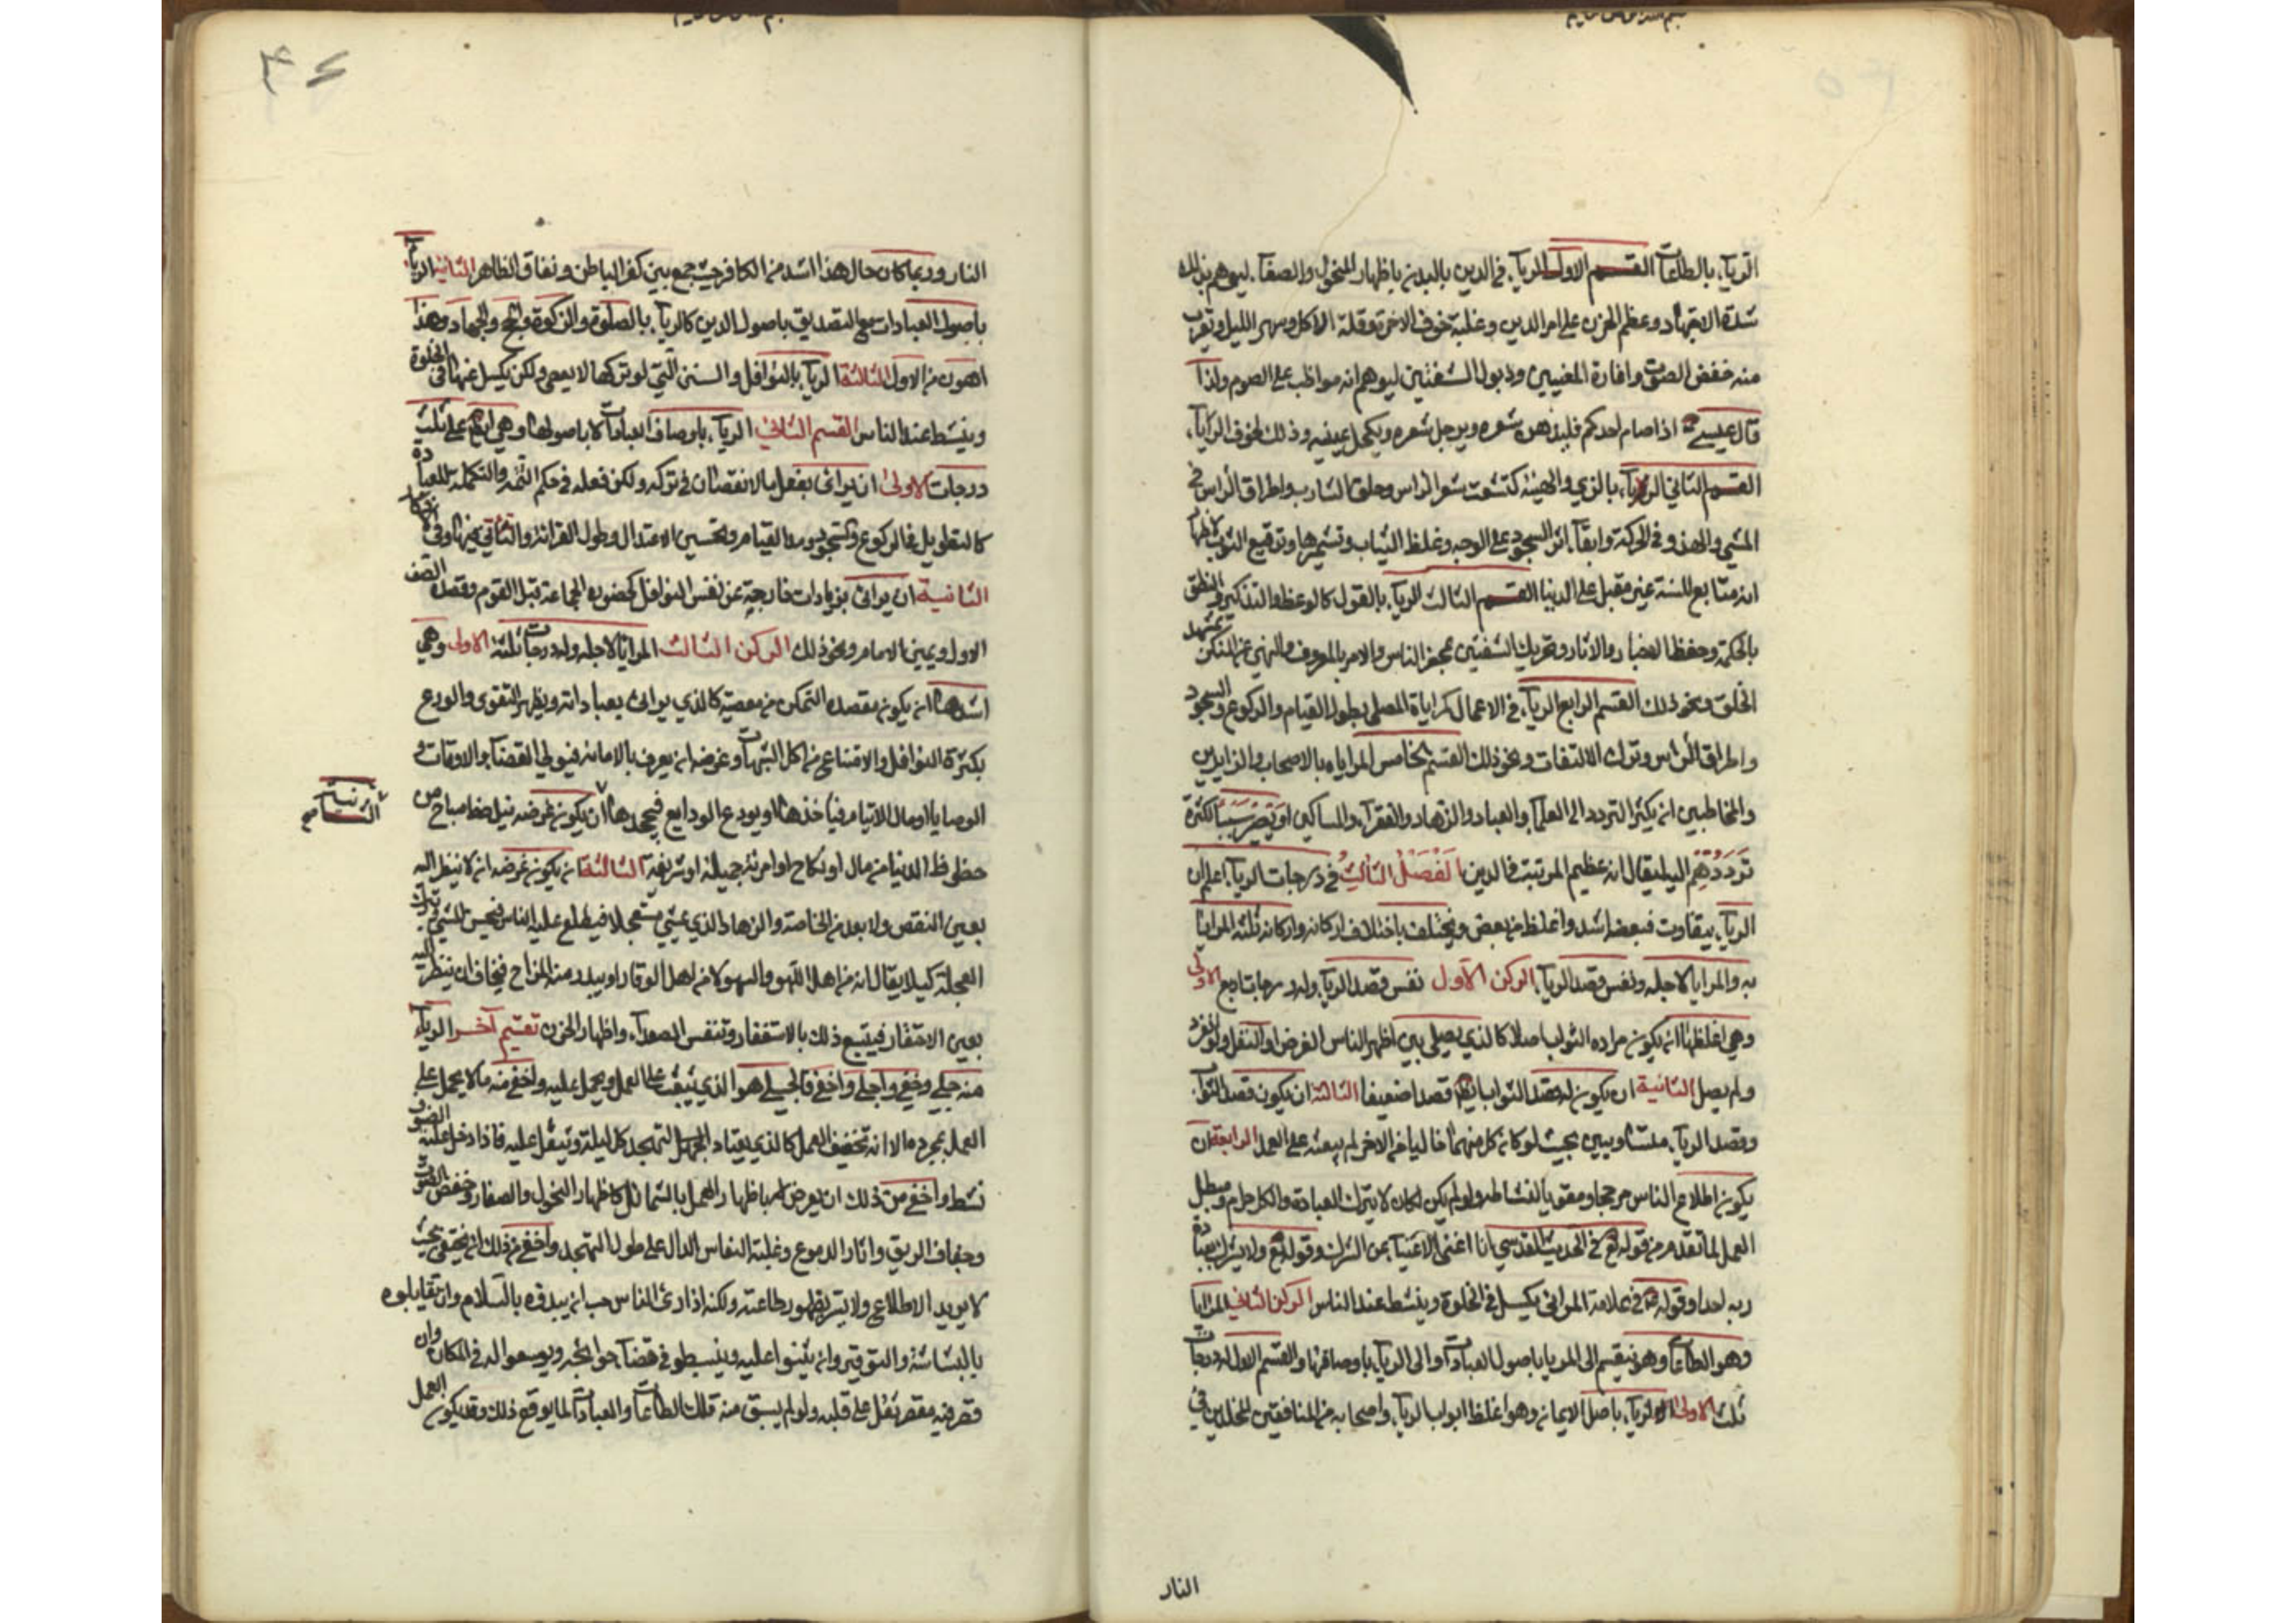 الريآء بالطاعات القسم الاول الريآء في الدين بالبدن باظهار النحول والصفآء ليوهم بذلك
شدة الاجتهاد وعظم الحزن على امر الدين وغلبة خوف الاخرة وقلة الاكل وسهر الليل وتقرب
منه خفض الصوت واغارة العينين وذبول الشفتين ليوهم انه مواظب على الصوم ولذا
قال عيسى اذا صام احدكم فليدهن شعره ويرجل شعره ويكحل عينيه وذلك لخوف الريآء
القسم الثاني الريآء بالزي والهيئة كتشعث شعر الراس وحلق الشارب واطراق الراس في
المشي والهدو في الحركة وابقآء اثر السجود على الوجه وغلظ الثياب وتشميرها وترقيع الثوب
انه متابع للسنة غير مقبل على الدنيا القسم الثالث الريآء بالقول كالوعظ والتذكير والنطق
بالحكمة وحفظ الاخبار والاثار وتحريك الشفتين بمحضر الناس والامر بالمعروف والنهي عن المنكر بمشهد
الخلق ونحو ذلك القسم الرابع الريآء في الاعمال كراياة المصلي بطول القيام والركوع والسجود
واطراق الراس وترك الالتفات ونحو ذلك القسم الخامس المراياه بالاصحاب والزايرين
والمخاطبين ان يكثر التردد الى العلمآء والعباد والزهاد والفقرآء والمساكين او يصير سببا لكثرة
ترددهم اليه ليقال انه عظيم المرتبت في الدين الفصل الثالث في درجات الريآء اعلم ان
الريآء يتفاوت فبعضه اشد واغلظ من بعض ويختلف باختلاف اركانه واركانه ثلثه المرايا
به والمرايا لاجله ونفس قصد الريآء الركن الاول نفس قصد الريآء وله درجات اربع الاولى
وهي اغلظها ان يكون مراده الثواب اصلا كالذي يصلي بين اظهر الناس الفرض او النفل ولو انفرد
ولم يصل الثانية ان يكون له قصد الثواب ايضا قصدا ضعيفا الثالثة ان يكون قصد الثواب
وقصد الريآء متساويين بحيث لو كان كل منهما خاليا من الاخر لم يبعثه على العمل الرابعة ان
يكون اطلاع الناس مرجحا ومقويا لنشاطه ولو لم يكن لكان لا يترك العبادة والكل حرام ومبطل
العمل لما تقدم من قوله تع في الحديث القدسي انا اغنى الاغنيآء عن الشرك وقوله تع ولا يشرك بعبادة
ربه احدا وقوله في علامة المرائي يكسل في الخلوة وينشط عند الناس الركن الثاني المرايا
وهو الطاعات وهو ينقسم الى المرايا باصول العبادات والى الريآء باوصافها والقسم الاول له درجات
ثلث الاولى الريآء باصل الايمان وهو اغلظ ابواب الريآء واصحابه من المنافقين المخلدين في
النار
النار وربما كان حال هذا اشد من الكافر حيث جمع بين كفر الباطن ونفاق الظاهر الثانية الريآء
باصول العبادات مع التصديق باصول الدين كالريآء بالصلوة والزكوة والحج والجهاد وهذا
اهون من الاول الثالثة الريآء بالنوافل والسنن التي لو تركها لا يعصى ولكن يكسل عنها في الخلوة
وينشط عند الناس القسم الثاني الريآء باوصاف العبادات لا باصولها وهي ايضا على ثلث
درجات الاولى ان يرائى بفعل ما لا نقصان في تركه ولكن فعله في حكم التتمة والتكملة للعبادة
كالتطويل في الركوع والسجود ومد القيام وتحسين الاعتدال وطول القرائة والتاني فيها وفي الاذكار
الثانية ان يرائى بزيادات خارجة عن نفس النوافل كحضوره الجماعة قبل القوم وقصده الصف
الاول ويمين الامام ونحو ذلك الركن الثالث المرايا لاجله وله درجات ثلثة الاولى وهي
اشدها ان يكون مقصده التمكن من معصية كالذي يرائى بعباداته ويظهر التقوى والورع
بكثرة النوافل والامتناع من اكل الشبهات وغرضه ان يعرف بالامانة فيولي القضآء والاوقات و
الوصايا او مال الايتام فياخذها او يودع الودايع فيجحدها ان يكون غرضه نيل حظ مباح من
الثانية
حظوظ الدنيا من مال او نكاح او امرئة جميلة او شريفة الثالثة ان يكون غرضه ان لا ينظر اليه
بعين النقص ولا يعد من الخاصة والزهاد الذي يمشي مستعجلا فيطلع عليه الناس فيحسن المشي ويترك
العجلة كيلا يقال انه من اهل اللهو والسهو لا من اهل الوقار او يبدر منه المزاح فيخاف ان ينظر اليه
بعين الاحتقار فيتبع ذلك بالاستغفار وتنفس الصعدآء واظهار الحزن تقسيم آخر الريآء
منه جلي وخفي واجلى واخفى فالجلي هو الذي يبعث على العمل ويحمل عليه واخفى منه ما لا يحمل على
العمل بمجرده الا انه يخفف العمل كالذي يعتاد التهجد كل ليلة ويثقل عليه فاذا دخل عليه الضيف
نشط واخفى من ذلك ان يعرض باظهار العمل بالشمائل كاظهار النحول والصفار وخفض الصوت
وجفاف الريق واثار الدموع وغلبة النعاس الدال على طول التهجد واخفى من ذلك ان يختفي بحيث
لا يريد الاطلاع ولا يسر بظهور طاعته ولكنه اذا رئ الناس حب ان يبدؤه بالسلام وان تقابلوه
بالبشاشة والتوقير وان يثنوا عليه وينبسطو في قضآء حوائجه ويوسعوا له في المكان وان
قصر فيه مقصر ثقل على قلبه ولو لم يسبق منه تلك الطاعات والعبادات لما يوقع ذلك وقد يكون العمل